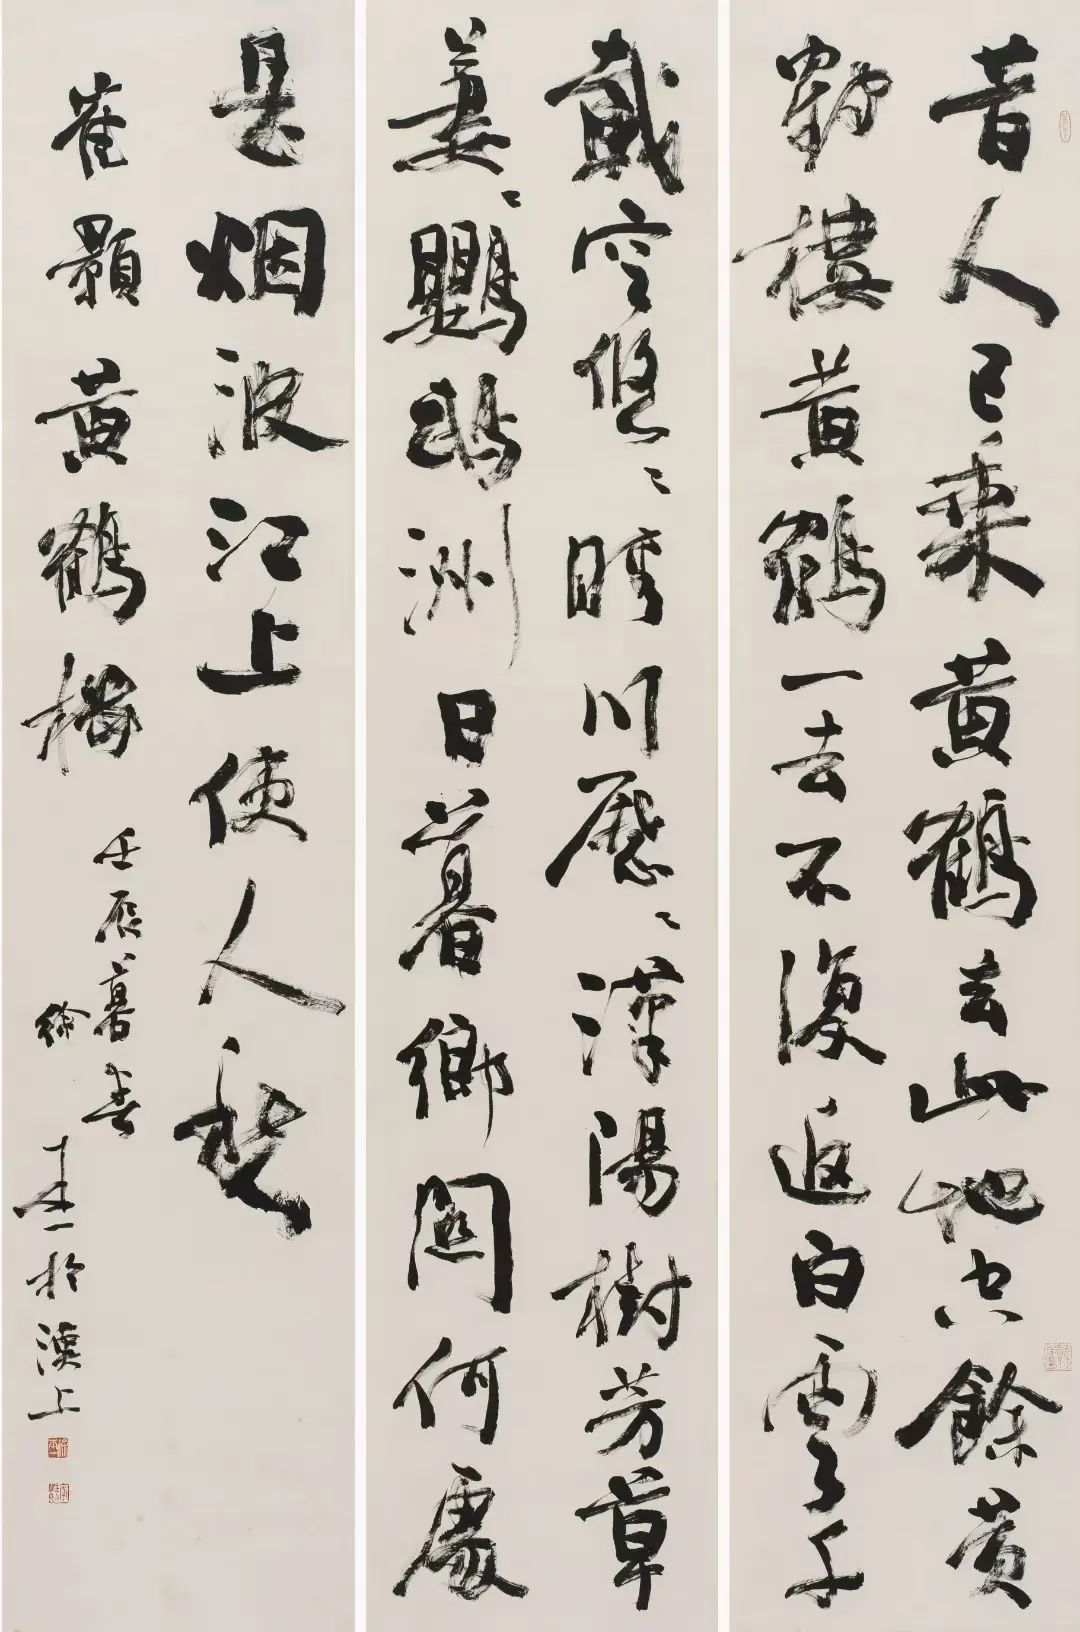 昔人已乘黄鶴去此地空餘黄
鶴樓黄鶴一去不復返白雲千
載空悠〻晴川歷〻漢陽樹芳草
萋〻鸚鵡洲日暮鄉關何處
是烟波江上使人愁
崔顥黄鶴樓
壬辰暮春
徐本一於漢上